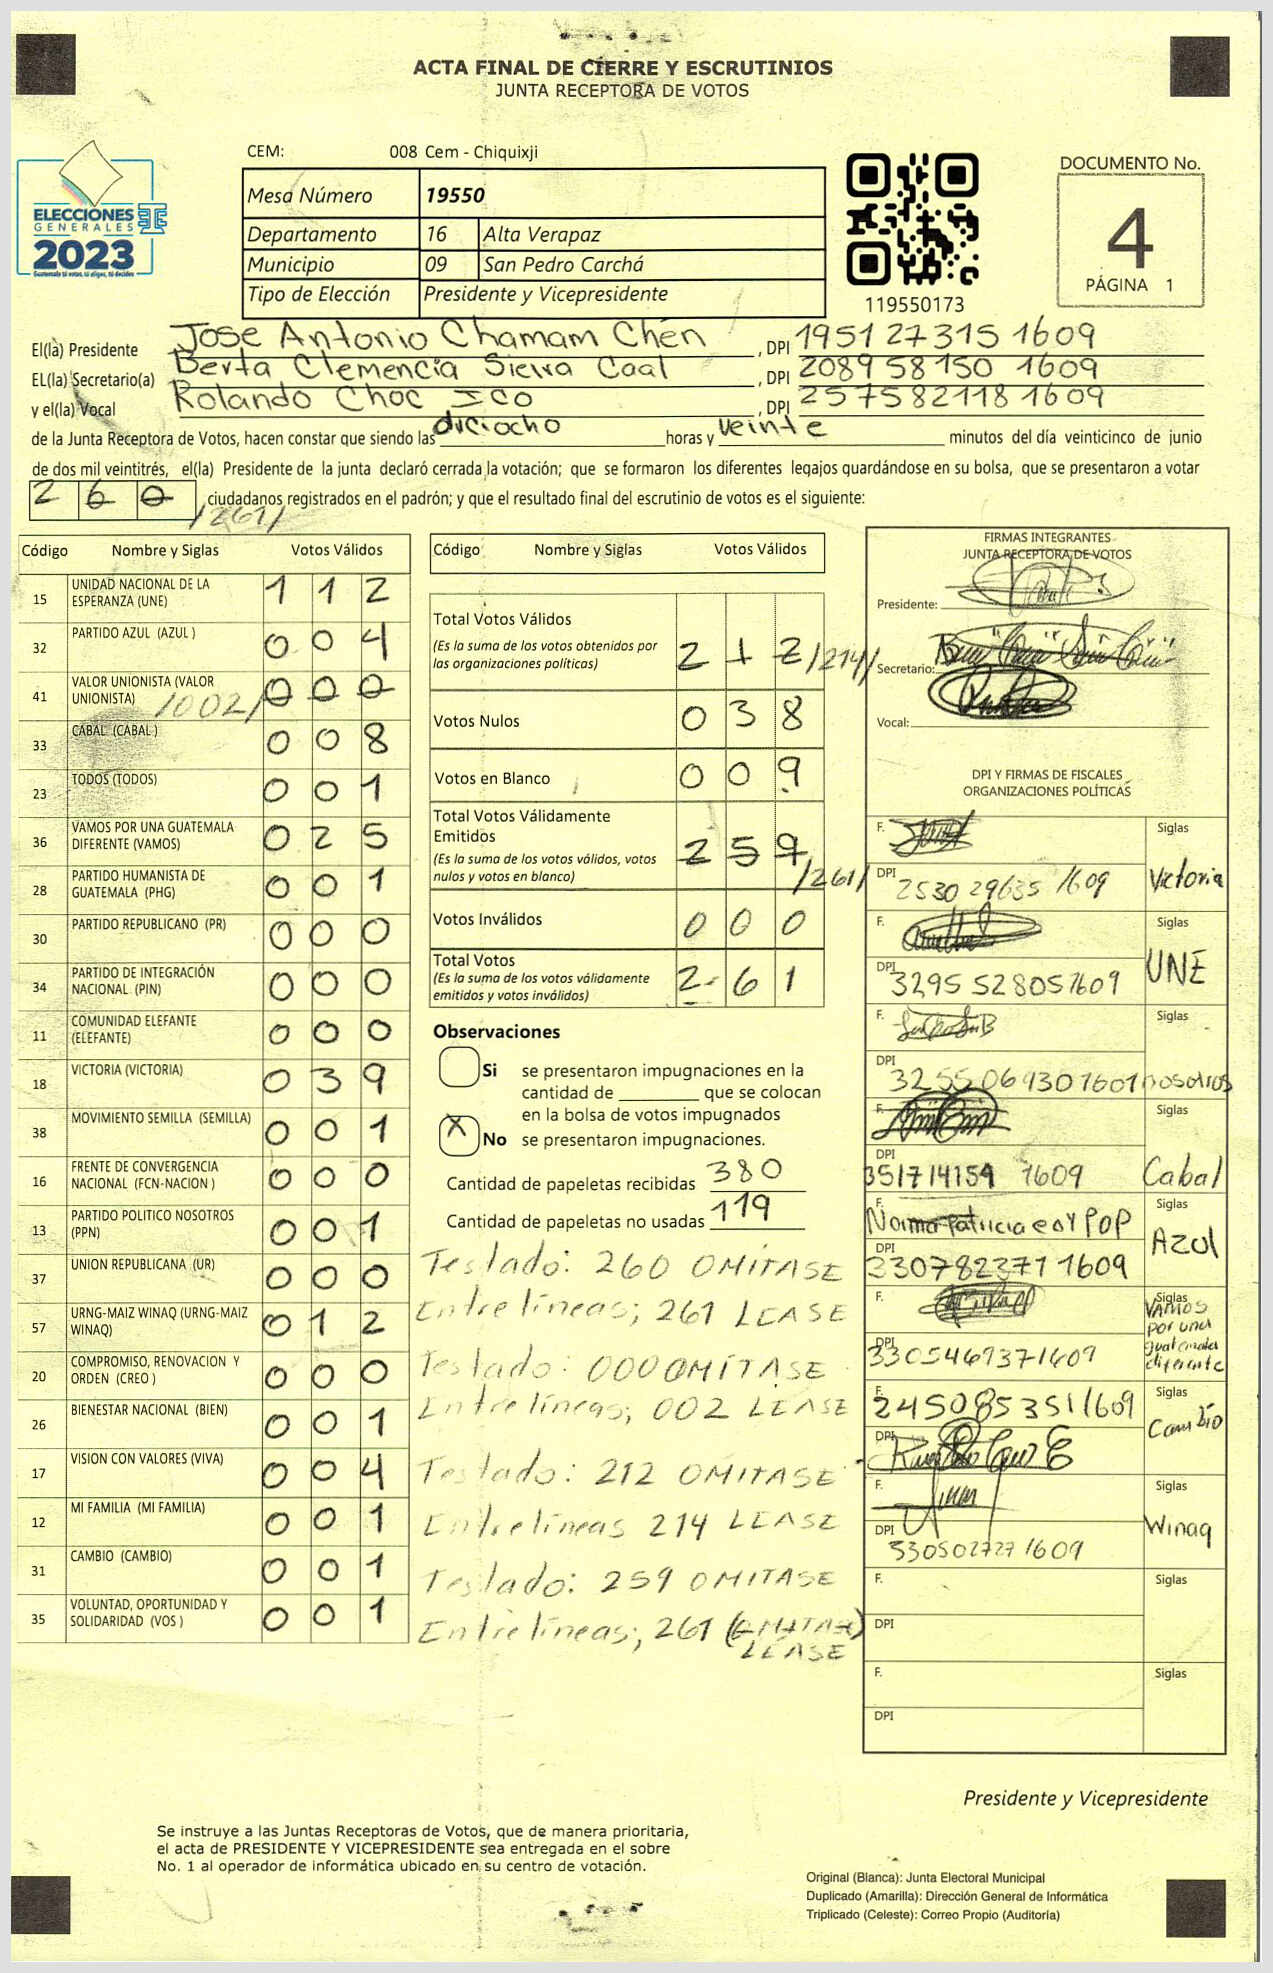 ACTA FINAL DE CIERRE Y ESCRUTINIOS
JUNTA RECEPTORA DE VOTOS
CEM: 008 Cem - Chiquixji
ELECCIONES
GENERALES
2023
Guatemala tú votas, tú eliges, tú decides
Mesa Número 19550
Departamento 16 Alta Verapaz
Municipio 09 San Pedro Carchá
Tipo de Elección Presidente y Vicepresidente
119550173
DOCUMENTO No.
4
PÁGINA 1
El(la) Presidente Jose Antonio Chamam Chén, DPI 195127315 1609
EL(la) Secretario(a) Berta Clemencia Sierra Caal, DPI 2089 58150 1609
y el(la) Vocal Rolando Choc Ico, DPI 257582118 1609
de la Junta Receptora de Votos, hacen constar que siendo las diciocho horas y veinte minutos del día veinticinco de junio
de dos mil veintitrés, el(la) Presidente de la junta declaró cerrada la votación; que se formaron los diferentes legajos guardándose en su bolsa, que se presentaron a votar
2 6 0 ciudadanos registrados en el padrón; y que el resultado final del escrutinio de votos es el siguiente:
/261/
Código Nombre y Siglas Votos Válidos
15 UNIDAD NACIONAL DE LA ESPERANZA (UNE) 1 1 2
32 PARTIDO AZUL (AZUL ) 0 0 4
41 VALOR UNIONISTA (VALOR UNIONISTA) /002/ 0 0 0
33 CABAL (CABAL ) 0 0 8
23 TODOS (TODOS) 0 0 1
36 VAMOS POR UNA GUATEMALA DIFERENTE (VAMOS) 0 2 5
28 PARTIDO HUMANISTA DE GUATEMALA (PHG) 0 0 1
30 PARTIDO REPUBLICANO (PR) 0 0 0
34 PARTIDO DE INTEGRACIÓN NACIONAL (PIN) 0 0 0
11 COMUNIDAD ELEFANTE (ELEFANTE) 0 0 0
18 VICTORIA (VICTORIA) 0 3 9
38 MOVIMIENTO SEMILLA (SEMILLA) 0 0 1
16 FRENTE DE CONVERGENCIA NACIONAL (FCN-NACION ) 0 0 0
13 PARTIDO POLITICO NOSOTROS (PPN) 0 0 1
37 UNION REPUBLICANA (UR) 0 0 0
57 URNG-MAIZ WINAQ (URNG-MAIZ WINAQ) 0 1 2
20 COMPROMISO, RENOVACION Y ORDEN (CREO ) 0 0 0
26 BIENESTAR NACIONAL (BIEN) 0 0 1
17 VISION CON VALORES (VIVA) 0 0 4
12 MI FAMILIA (MI FAMILIA) 0 0 1
31 CAMBIO (CAMBIO) 0 0 1
35 VOLUNTAD, OPORTUNIDAD Y SOLIDARIDAD (VOS ) 0 0 1
Código Nombre y Siglas Votos Válidos
Total Votos Válidos
(Es la suma de los votos obtenidos por
las organizaciones políticas) 2 1 2 /214/
Votos Nulos 0 3 8
Votos en Blanco 0 0 9
Total Votos Válidamente
Emitidos
(Es la suma de los votos válidos, votos
nulos y votos en blanco) 2 5 9 /261/
Votos Inválidos 0 0 0
Total Votos
(Es la suma de los votos válidamente
emitidos y votos inválidos) 2 6 1
Observaciones
Si se presentaron impugnaciones en la
cantidad de ________ que se colocan
en la bolsa de votos impugnados
X No se presentaron impugnaciones.
Cantidad de papeletas recibidas 380
Cantidad de papeletas no usadas 119
Testado: 260 OMITASE
Entre líneas; 261 LEASE
Testado: 000 OMÍTASE
Entre líneas; 002 LEASE
Testado: 212 OMITASE
Entre líneas 214 LEASE
Testado: 259 OMITASE
Entre líneas; 261 (OMITASE)
LEASE
FIRMAS INTEGRANTES
JUNTA RECEPTORA DE VOTOS
Presidente:
Secretario:
Vocal:
DPI Y FIRMAS DE FISCALES
ORGANIZACIONES POLÍTICAS
F. Siglas
DPI 2530 29635 1609 Victoria
F. Siglas
DPI 3295 52805 1609 UNE
F. Siglas
DPI 3255069301601 nosotros
F. Siglas
DPI 351714154 1609 Cabal
F. Norma Patricia Coy POP Siglas
DPI 330782371 1609 Azul
F. Siglas
DPI 3305469371609 VAMOS por una guatemala diferente
F. 2450853511609 Siglas
DPI Cambio
F. Siglas
DPI 330502727 1609 Winaq
F. Siglas
DPI
F. Siglas
DPI
Presidente y Vicepresidente
Se instruye a las Juntas Receptoras de Votos, que de manera prioritaria,
el acta de PRESIDENTE Y VICEPRESIDENTE sea entregada en el sobre
No. 1 al operador de informática ubicado en su centro de votación.
Original (Blanca): Junta Electoral Municipal
Duplicado (Amarilla): Dirección General de Informática
Triplicado (Celeste): Correo Propio (Auditoría)